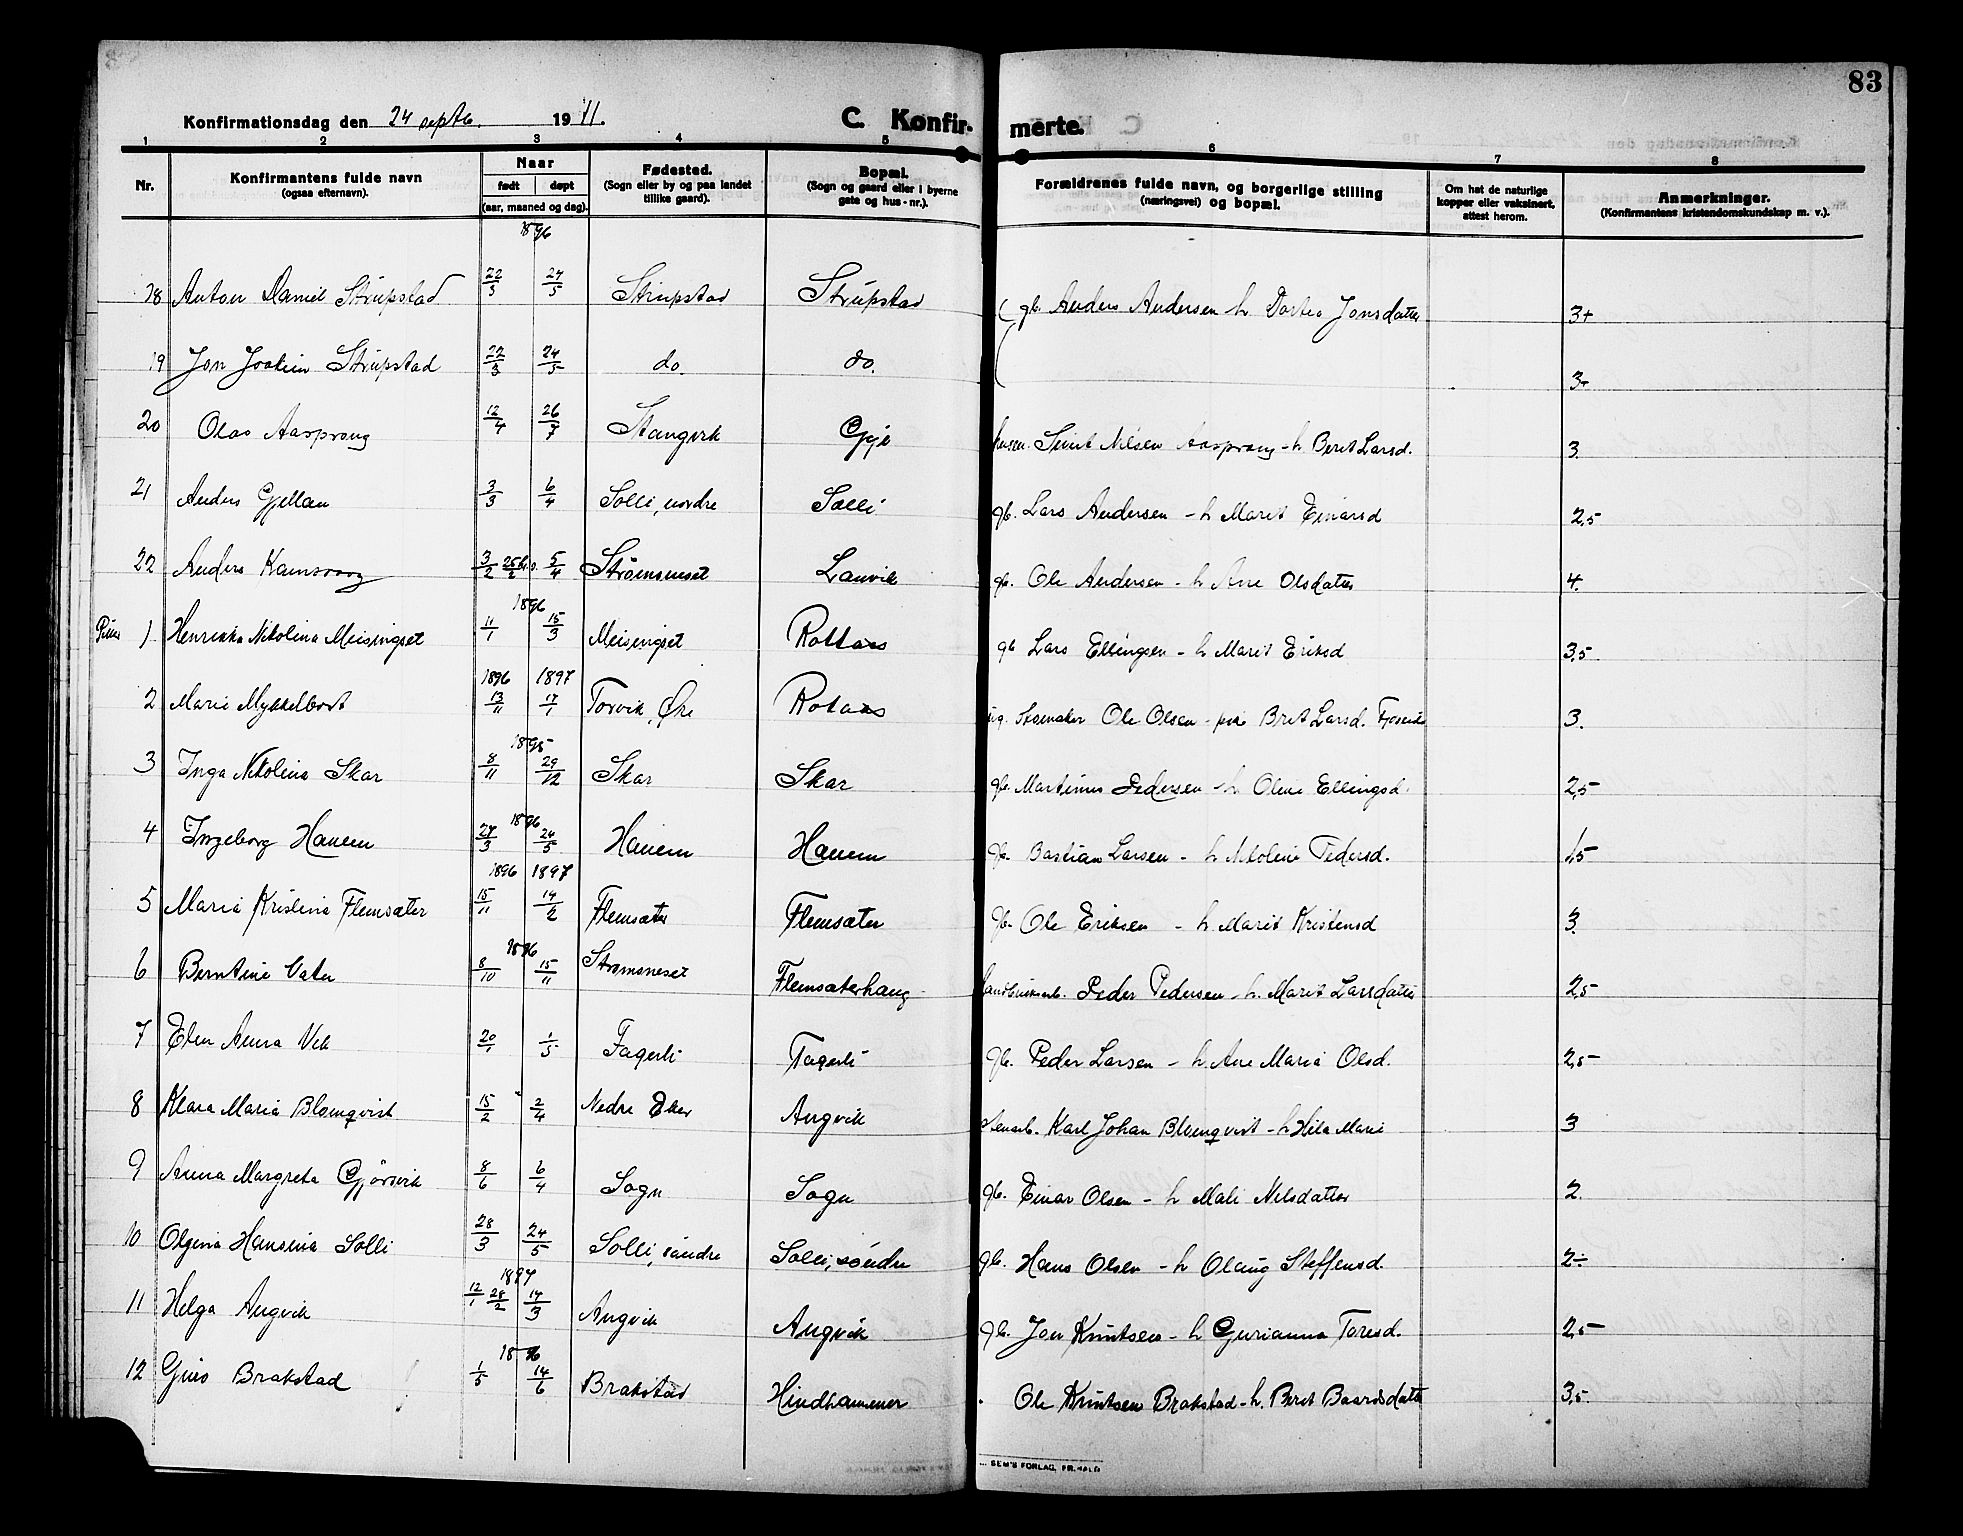 83
Konfirmationsdag den 24 septb. 1911. C. Konfir- merte.
1 2 3 4 5 6 7 8
Nr. Konfirmantens fulde navn (ogsaa efternavn). Naar født døpt (aar, maaned og dag). Fødested. (Sogn eller by og paa landet tillike gaard). Bopæl. (Sogn og gaard eller i byerne gate og hus-nr.). Forældrenes fulde navn, og borgerlige stilling (næringsvei) og bopæl. Om hat de naturlige kopper eller vaksinert, attest herom. Anmerkninger. (Konfirmantens kristendomskundskap m. v.).
1896
18 Anton Daniel Strupstad 22/3 24/5 Strupstad Strupstad gb. Anders Andersen h Dortea Jonsdatter 3+
19 Jon Joakim Strupstad 22/3 24/5 do. do. 3+
20 Olav Aasprong 12/4 26/7 Stangvik Gyl Sivert Nilsen Aasprong - h Beret Larsd. 3.
21 Anders Gjellan 3/3 6/4 Solli, nordre Solli gb. Lars Andersen - h Marit Einarsd 2,5
22 Anders Kamsvaag 3/2 5/4 Strømsneset Lanvik gb. Ole Andersen - h Ane Olsdatter 4.
1896
Piker 1 Henrikka Nikolina Meisingset 11/1 15/3 Meisingset Rottaas gb Lars Ellingsen - h Marit Eriksd 3,5
1896 1897
2 Marie Mykkelbost 13/11 17/1 Torvik, Øre Rotaas Skomaker Ole Olsen - Brit Larsd. 3.
1895
3 Inga Nikolina Skar 8/11 29/12 Skar Skar gb. Martinus Pedersen - h Oline Ellingsd. 2,5
1896
4 Ingeborg Hanem 27/3 24/5 Hanem Hanem gb. Bastian Larsen - h Nikoline Pedersd. 1,5
1896 1897
5 Maria Kristina Flemsæter 15/11 14/2 Flemsæter Flemsæter gb. Ole Eriksen - h Marit Kristensd 3.
1896
6 Berntine Vatn 8/10 15/11 Strømsneset Flemsæterhaug Peder Pedersen - h. Marit Larsdatter 2,5
7 Elen Anna Vik 20/1 1/5 Fagerli Fagerli gb. Peder Larsen - h Ane Maria Olsd. 2,5
8 Klara Maria Blomqvist 15/2 2/4 Nedre Eker Angvik Karl Johan Blomqvist - h Hilda Marie 3
9 Anna Margreta Gjørsvik 8/6 6/4 Sogn Sogn gb. Einar Olsen - h Mali Nilsdatter 2.
10 Olgena Hansina Solli 28/3 24/5 Solli, søndre Solli, søndre gb. Hans Olsen - h Olaug Steffensd. 2÷
1897
11 Helga Angvik 12/1 28/2 14/3 Angvik Angvik gb. Jon Knutsen - h Gurianna Toresd. 2,5
1896
12 Guro Brakstad 1/5 14/6 Brakstad Hindhammer Ole Knutsen Brakstad - h. Beret Baardsdatter 3,5
SEM'S FORLAG, FR.HALD